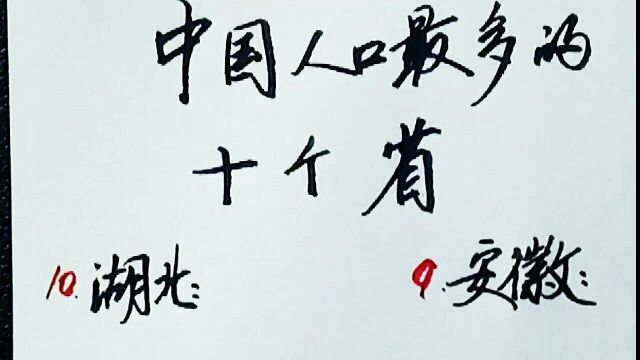 中国人口最多的
十个省
10.湖北： 9.安徽：